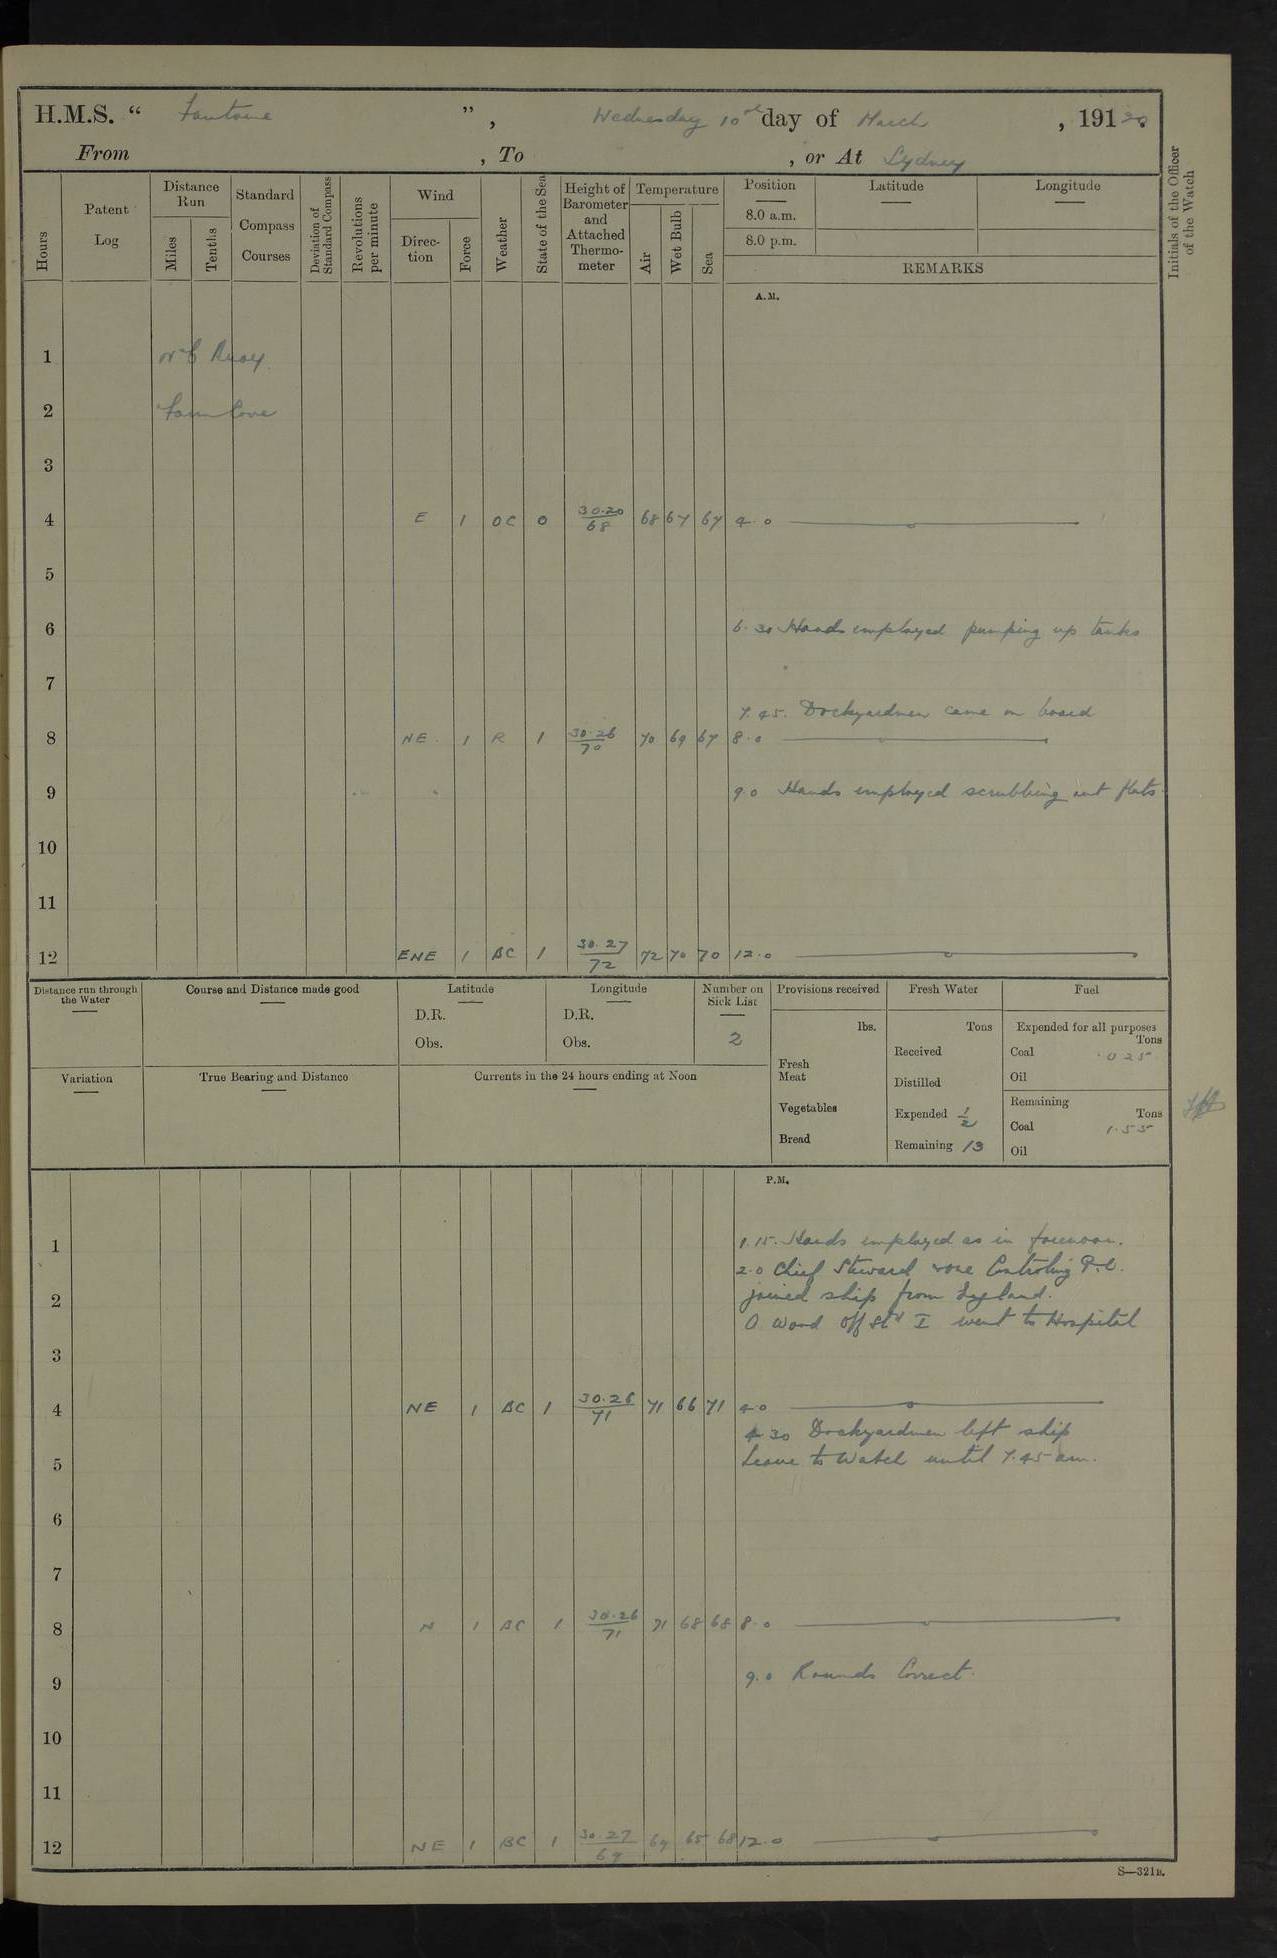 H.M.S. “ Fantome ” , Wednesday 10th day of March , 191 20
From , To , or At Sydney
Hours
Patent Log
Distance Run
Miles
Tenths
Standard Compass Courses
Deviation of Standard Compass
Revolutions per minute
Wind
Direc-tion
Force
Weather
State of the Sea
Height of Barometer and Attached Thermo-meter
Temperature
Air
Wet Bulb
Sea
Position
8.0 a.m.
8.0 p.m.
Latitude
Longitude
REMARKS
Initials of the Officer of the Watch
A.M.
1 Buoy
2 Farm Cove
3
4 E 1 OC 0 30.20/68 68 67 67 4.0
5
6 6.30 Hands employed pumping up tanks
7
7.45. Dockyardmen came on board
8 NE 1 R 1 30.26/70 70 69 67 8.0
9 9.0 Hands employed scrubbing out flats.
10
11
12 ENE 1 BC 1 30.27/72 72 70 70 12.0
Distance run through the Water
Course and Distance made good
Latitude
D.R.
Obs.
Longitude
D.R.
Obs.
Number on Sick List
2
Provisions received
lbs.
Fresh Meat
Vegetables
Bread
Fresh Water
Tons
Received
Distilled
Expended 1/2
Remaining 13
Fuel
Expended for all purposes
Tons
Coal .025
Oil
Remaining
Tons
Coal 1.55
Oil
Variation
True Bearing and Distance
Currents in the 24 hours ending at Noon
P.M.
1 1.15. Hands employed as in forenoon.
2.0 Chief Steward & one P.O.
2 joined ship from
O Wood Off Std I went to Hospital
3
4 NE 1 BC 1 30.26/71 71 66 71 4.0
4.30 Dockyardmen left ship
5 Leave to Watch until 7.45 am.
6
7
8 N 1 BC 1 30.26/71 71 68 68 8.0
9 9.0 Rounds Correct.
10
11
12 NE 1 BC 1 30.27/69 69 65 68 12.0
S—321B.